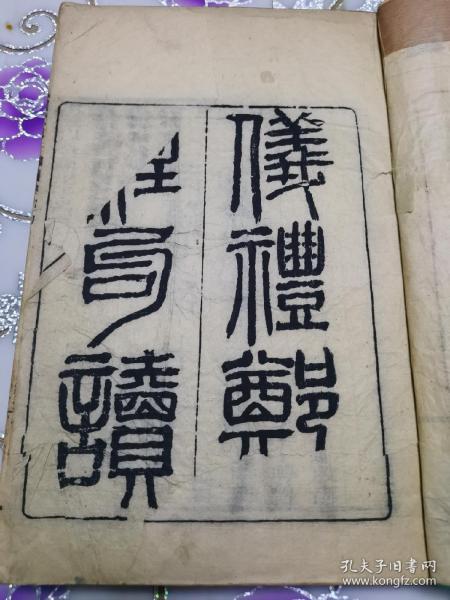 儀禮鄭
註句讀
孔夫子旧书网
www.kongfz.com